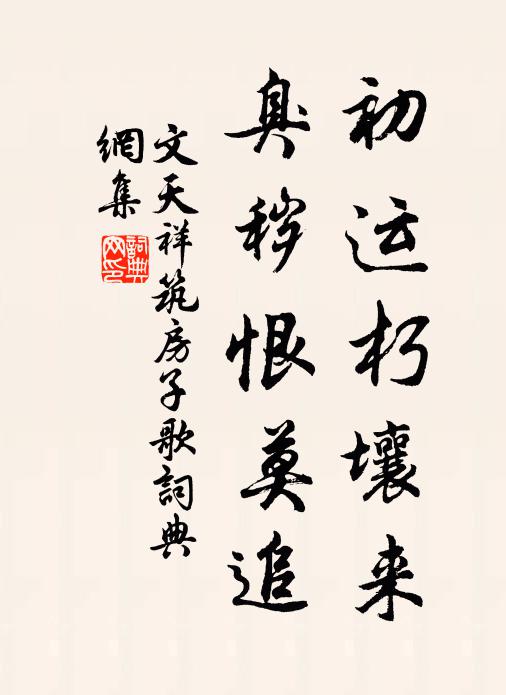 初运朽壤来
臭秽恨莫追
文天祥筑房子歌詞典
網集
詞典網印